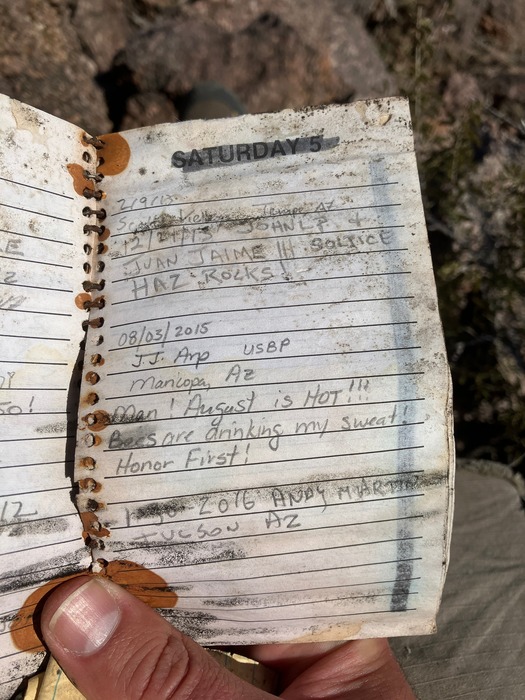 SATURDAY 5
2/9/13
Tempe, AZ
12/21/13 JOHN L.P. &
JUAN JAIME III SOLTICE
HAZ ROCKS!
08/03/2015
J.J. Arp USBP
Maricopa, AZ
Man! August is HOT!!!
Bees are drinking my sweat!
Honor First!
2016 ANDY MARTIN
TUCSON AZ